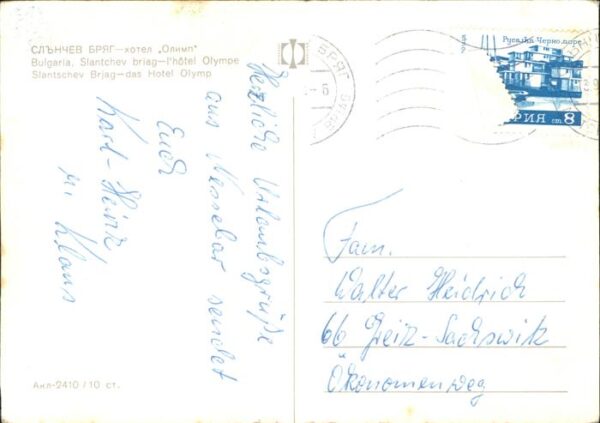 СЛЪНЧЕВ БРЯГ—хотел „Олимп“
Bulgaria, Slantchev briag—l'hôtel Olympe
Slantschev Brjag—das Hotel Olymp
Herzliche Urlaubsgrüße
aus Nessebar sendet
Euch
Karl-Heinz
u. Klaus
Акл-2410 / 10 ст.
БРЯГ
Русалка Черно море
РИЯ ст. 8
Fam.
Walter Heidrich
66 Greiz-Sachswitz
Ökonomenweg